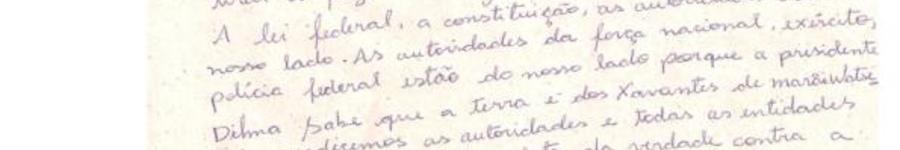 A lei federal, a constituição, as
nosso lado. As autoridades da força nacional, exército,
polícia federal estão do nosso lado porque a presidente
Dilma sabe que a terra é dos Xavantes de marãiwatse
as autoridades e todas as entidades
verdade contra a